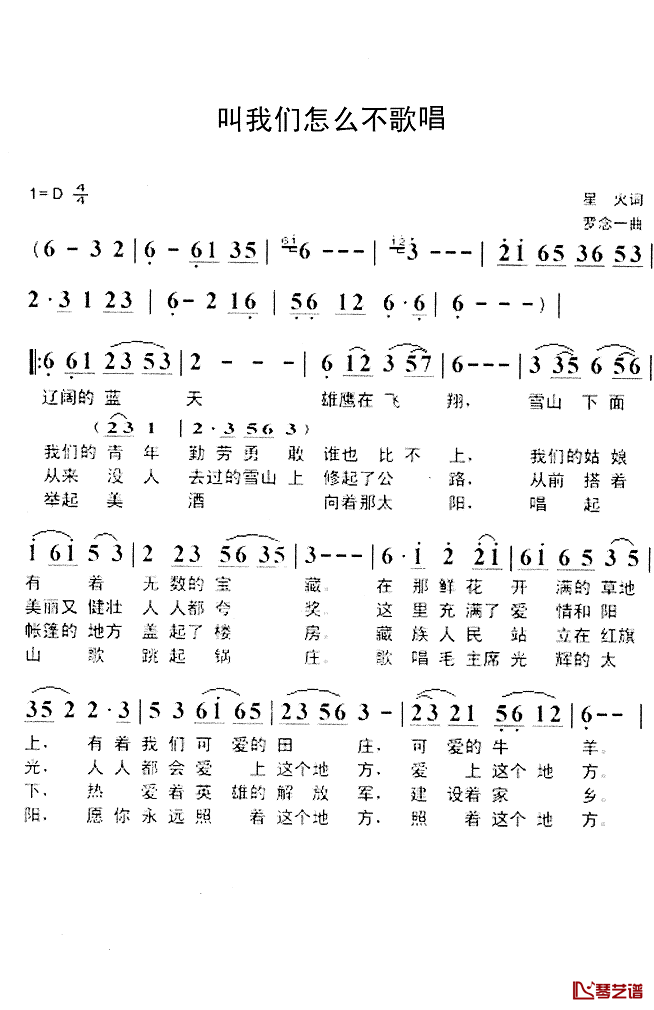 叫我们怎么不歌唱
1=D 4/4
星 火词
罗念一曲
(6 - 3 2 | 6 - 61 35 | 61 6 - - - | 12 3 - - - | 21 65 36 53 |
2·3 12 23 | 6 - 2 16 | 56 12 6·6 | 6 - - - ) |
‖: 6 61 23 53 | 2 - - - | 6 12 3 57 | 6 - - - | 3 35 6 56 |
辽阔的 蓝 天 雄鹰在 飞 翔, 雪山 下 面
( 23 1 | 2·3 56 3 )
我们的 青 年 勤 劳 勇 敢 谁 也 比 不 上, 我们的 姑 娘
从来 没 人 去过的 雪 山 上 修起了 公 路, 从前 搭 着
举起 美 酒 向着那太 阳, 唱 起
1 61 5 3 | 2 23 56 35 | 3 - - - | 6· 1 2 21 | 61 6 5 3 |
有 着 无 数的 宝 藏。 在 那 鲜 花 开 满的 草地
美丽又 健壮 人 人都 夸 奖。 这 里 充 满 了 爱 情和 阳
帐篷的 地方 盖 起了 楼 房。 藏 族 人 民 站 立在 红旗
山 歌 跳 起 锅 庄。 歌 唱 毛 主 席 光 辉 的 太
35 2 2·3 | 5 3 61 65 | 23 56 3 - | 23 21 56 12 | 6 - - |
上, 有 着 我 们 可 爱的 田 庄, 可 爱的 牛 羊。
光, 人 人 都 会 爱 上 这个 地 方, 爱 上 这个 地 方。
下, 热 爱 着 英 雄的 解 放 军, 建 设着 家 乡。
阳, 愿 你 永 远 照 着 这个 地 方, 照 着 这个 地 方。
琴艺谱